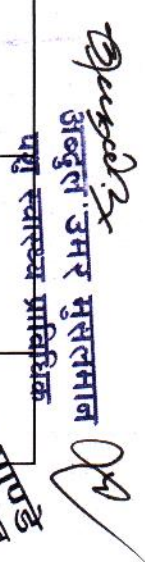 अब्दुल उमर मुसलमान
पशु स्वास्थ्य प्राविधिक
पाण्डे